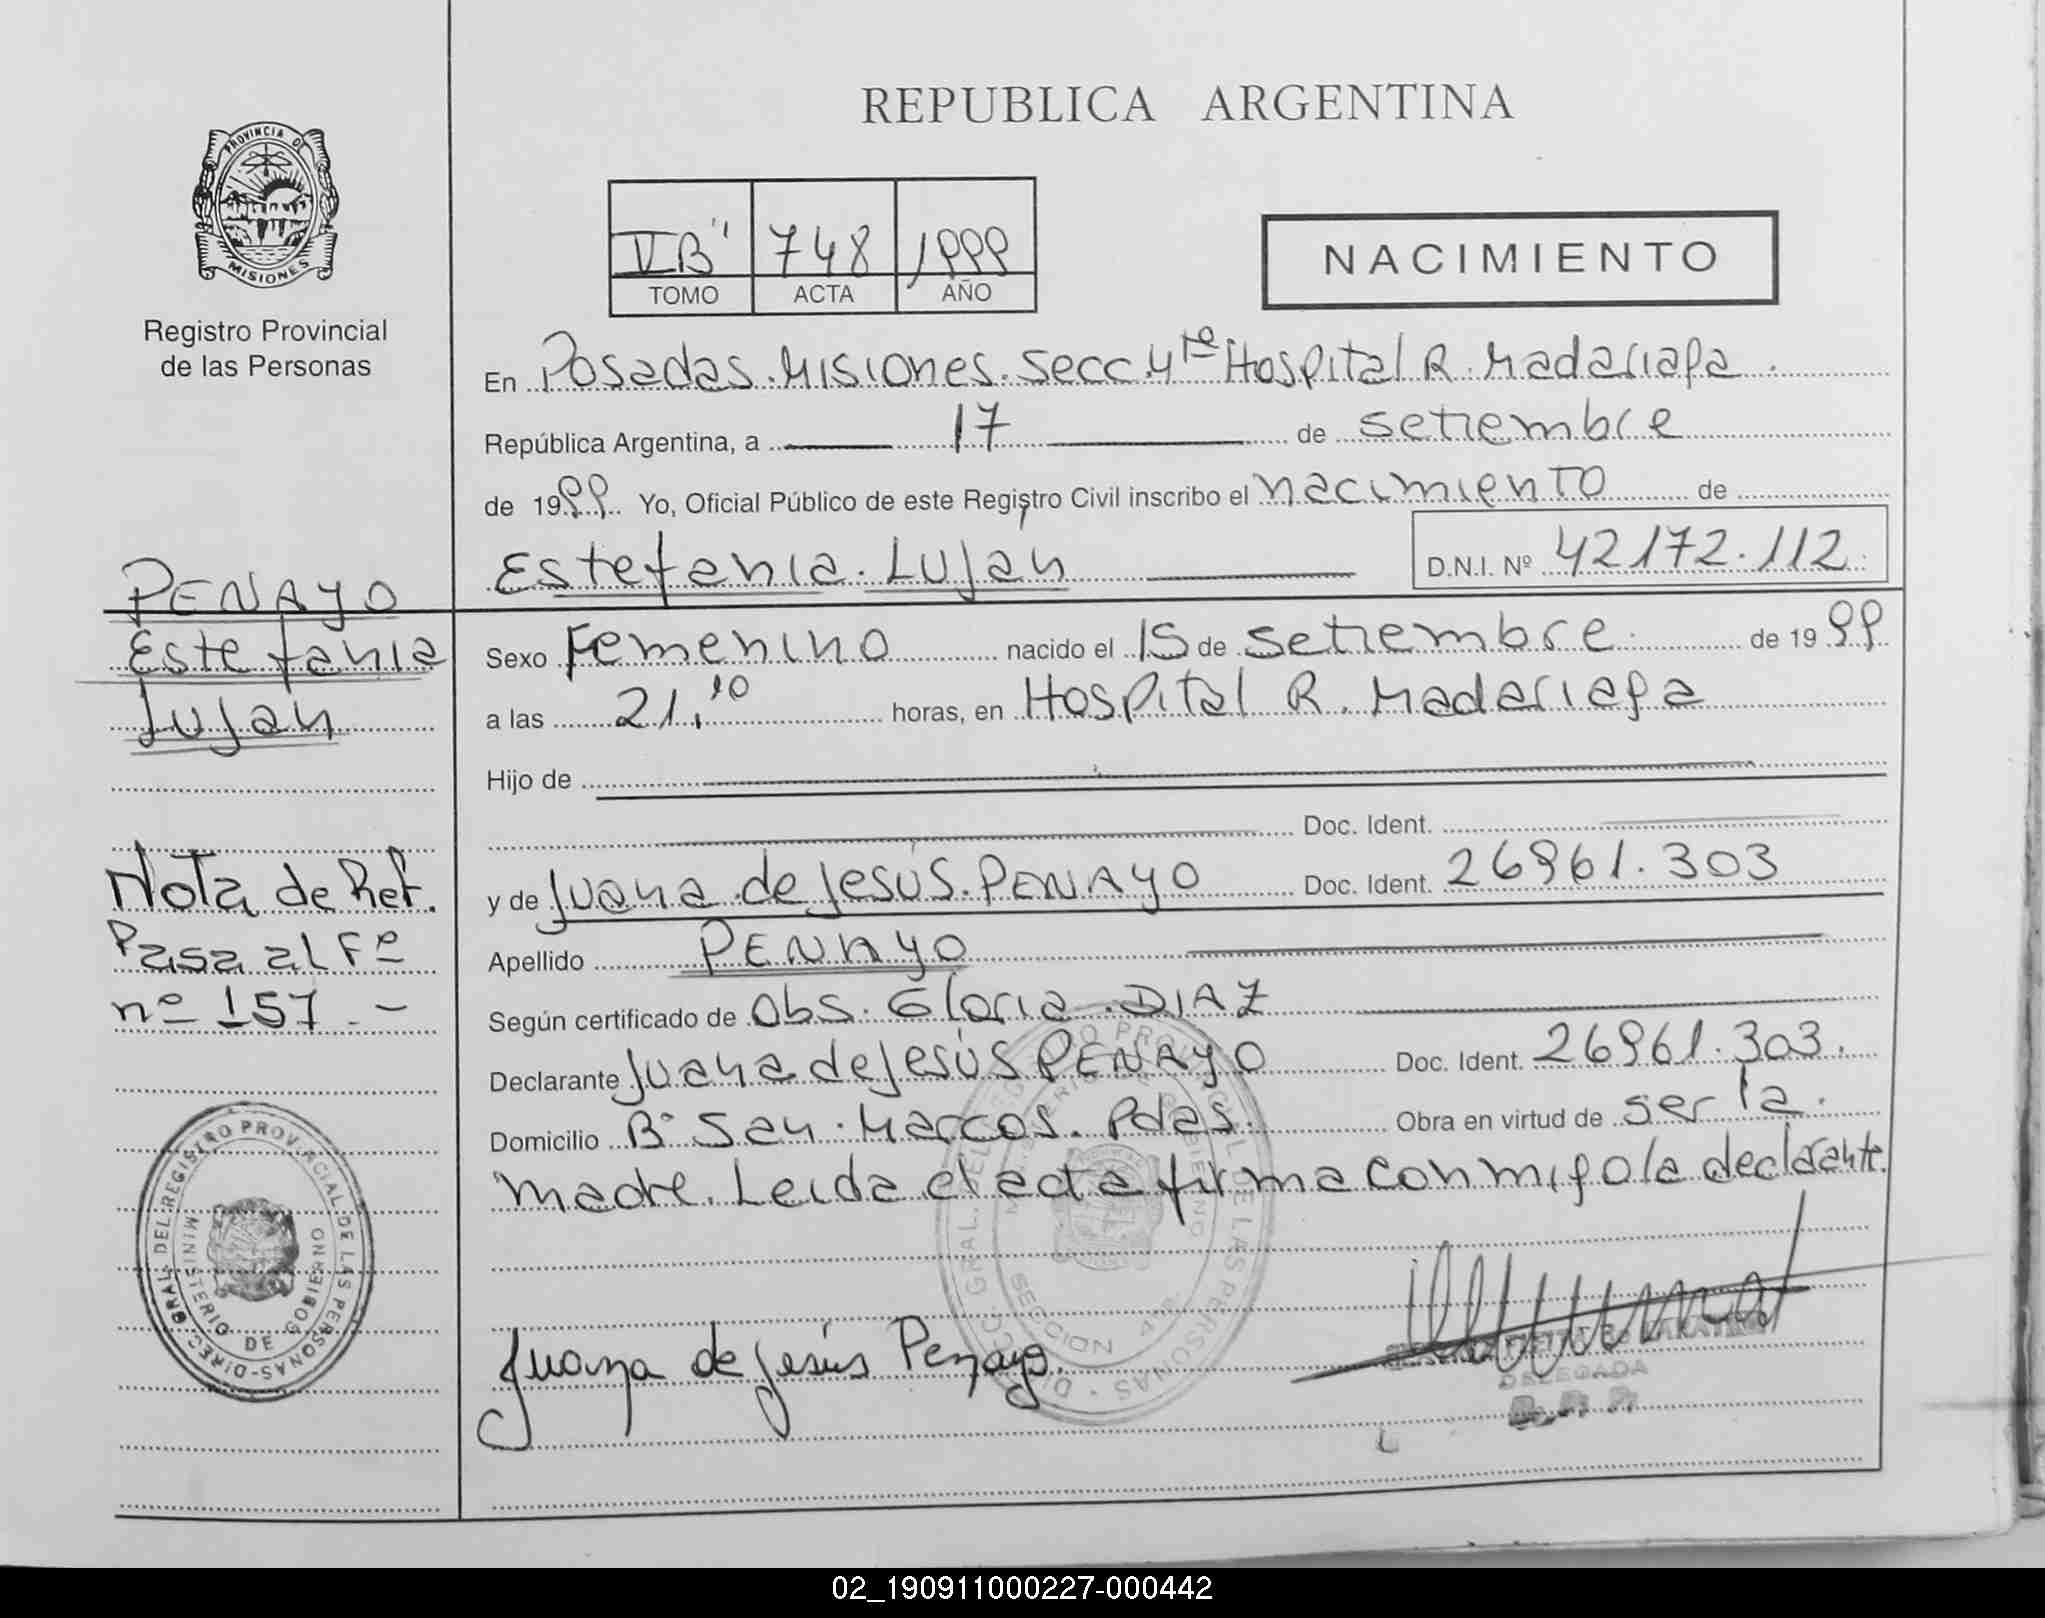 REPUBLICA ARGENTINA
PROVINCIA DE
MISIONES
Registro Provincial
de las Personas
V"B" 748 1999
TOMO ACTA AÑO
NACIMIENTO
En Posadas. Misiones. Secc. 4ta Hospital R. Madariaga.
República Argentina, a 17 de setiembre
de 1999 Yo, Oficial Público de este Registro Civil inscribo el nacimiento de
Estefania. Lujan D.N.I. Nº 42172.112
PENAYO
Estefania
Lujan
Sexo Femenino nacido el 15 de setiembre de 1999
a las 21,10 horas, en Hospital R. Madariaga
Hijo de
Doc. Ident.
y de Juana de Jesús. PENAYO Doc. Ident. 26961.303
Apellido PENAYO
Según certificado de Obs. Gloria. DIAZ
Declarante Juana de Jesús PENAYO Doc. Ident. 26961.303.
Domicilio Bº San. Marcos. Pdas. Obra en virtud de ser la
madre. Leida el acta firma conmigo la declarante.
Nota de Ref.
Pasa al Fº
nº 157.-
DIREC. GRAL. DEL REGISTRO PROVINCIAL DE LAS PERSONAS
MINISTERIO DE GOBIERNO
DIRECC. GRAL. DEL REGISTRO PROVINCIAL DE LAS PERSONAS
MINISTERIO DE GOBIERNO
SECCION 4ta.
Juana de Jesús Penayo.
DELEGADA
02_190911000227-000442